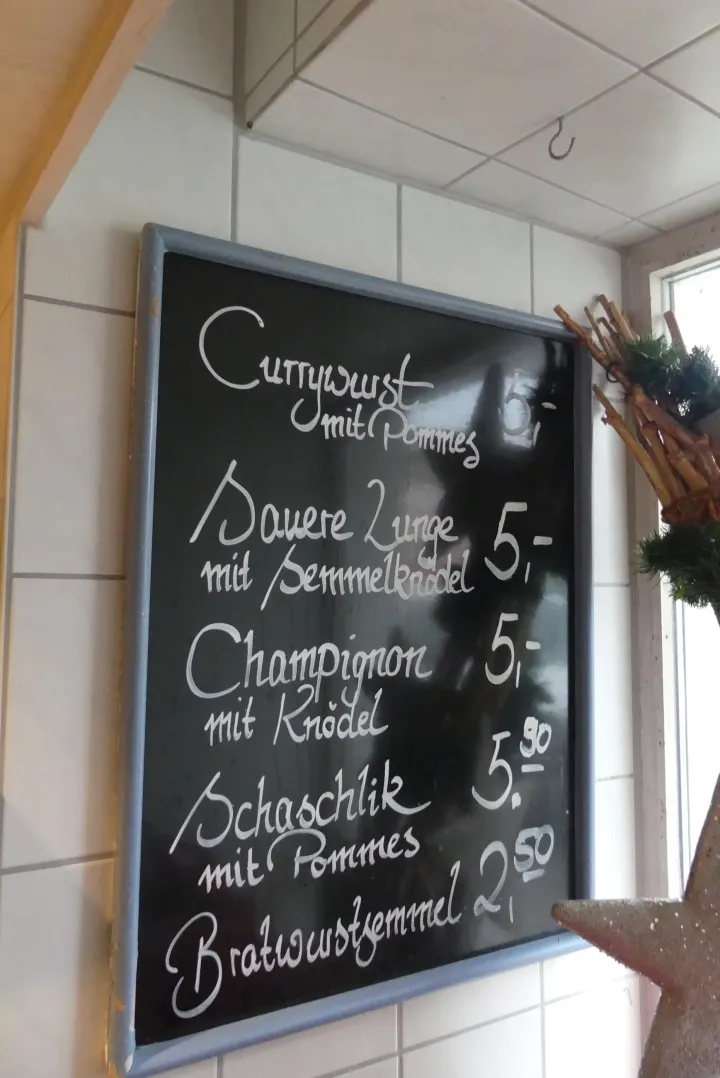 Currywurst
mit Pommes 5,-
Sauere Lunge
mit Semmelknödel 5,-
Champignon 5,-
mit Knödel
Schaschlik 5.90
mit Pommes
Bratwurstsemmel 2,50